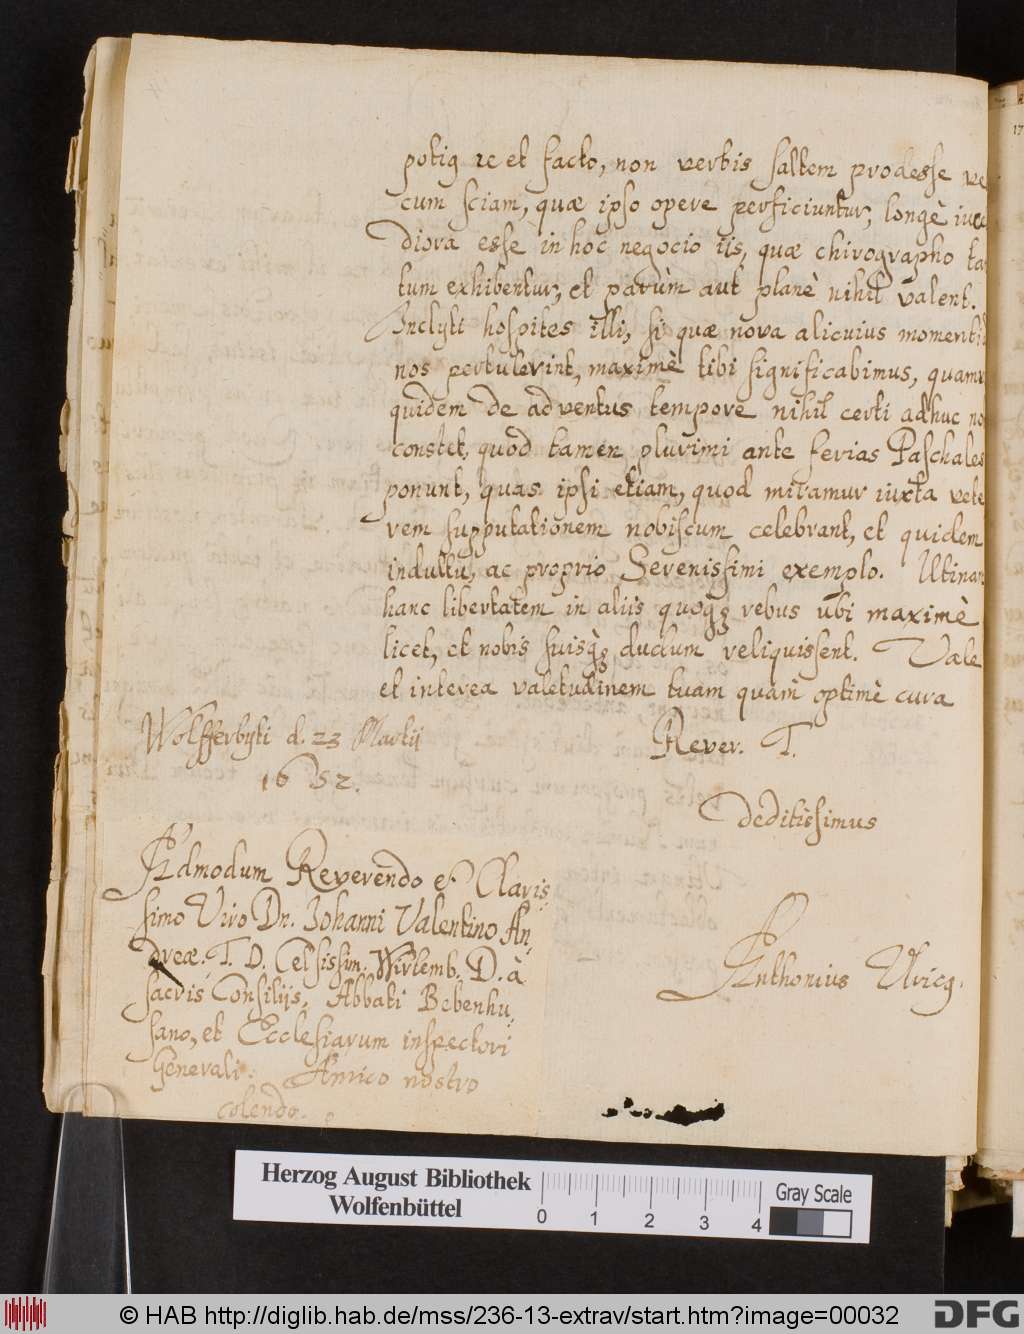 potiꝰ re et facto, non verbis saltem prodesse ve
cum sciam, quæ ipso opere perficiuntur, longè iucu
diora esse in hoc negocio iis, quæ chirographo ta
tum exhibentur, et parùm aut planè nihil valent.
Inclyti hospites illi, si quæ nova alicuius momenti
nos pertulerint, maximè tibi significabimus, quamv
quidem de adventus tempore nihil certi adhuc no
constet, quod tamen plurimi ante ferias Paschales
ponunt, quas ipsi etiam, quod miramur iuxta vete
rem supputationem nobiscum celebrant, et quidem
indultu, ac proprio Serenissimi exemplo. Utinam
hanc libertatem in aliis quoqꝫ rebus ubi maximè
licet, et nobis suisqꝫ dudum reliquissent. Vale
et interea valetudinem tuam quàm optimè cura
Wolfferbyti d. 23 Martij
1652.
Rever. T.
deditissimus
Anthonius Ulricꝰ.
Admodum Reverendo et Claris,
simo Viro Dn. Johanni Valentino An,
dreæ. T. D. Celsissim. Wirtemb. D. à
sacris Consilijs, Abbati Bebenhu,
sano, et Ecclesiarum inspectori
Generali. Amico nostro
colendo.
Herzog August Bibliothek
Wolfenbüttel
0 1 2 3 4
Gray Scale
© HAB http://diglib.hab.de/mss/236-13-extrav/start.htm?image=00032
DFG